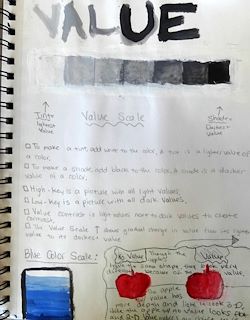 VALUE
Tint=
lightest
Value
Value Scale
Shade=
Darkest
Value
□ To make a tint, add white to the color, A tint is a lighter value of
a color.
□ To make a shade, add black to the color, A shade is a darker
value of a color.
□ High-key is a picture with all light values.
□ Low-key is a picture with all dark values.
□ Value contrasts is light values next to dark values to create
contrast.
□ The Value Scale shows gradual change in value from its lightest
value to its darkest value
Blue Color Scale:
No Value
Value
Though the apples
have same shape, they look very
different because of the value
The apple
value has
more depth and
like the apple no value looks flat